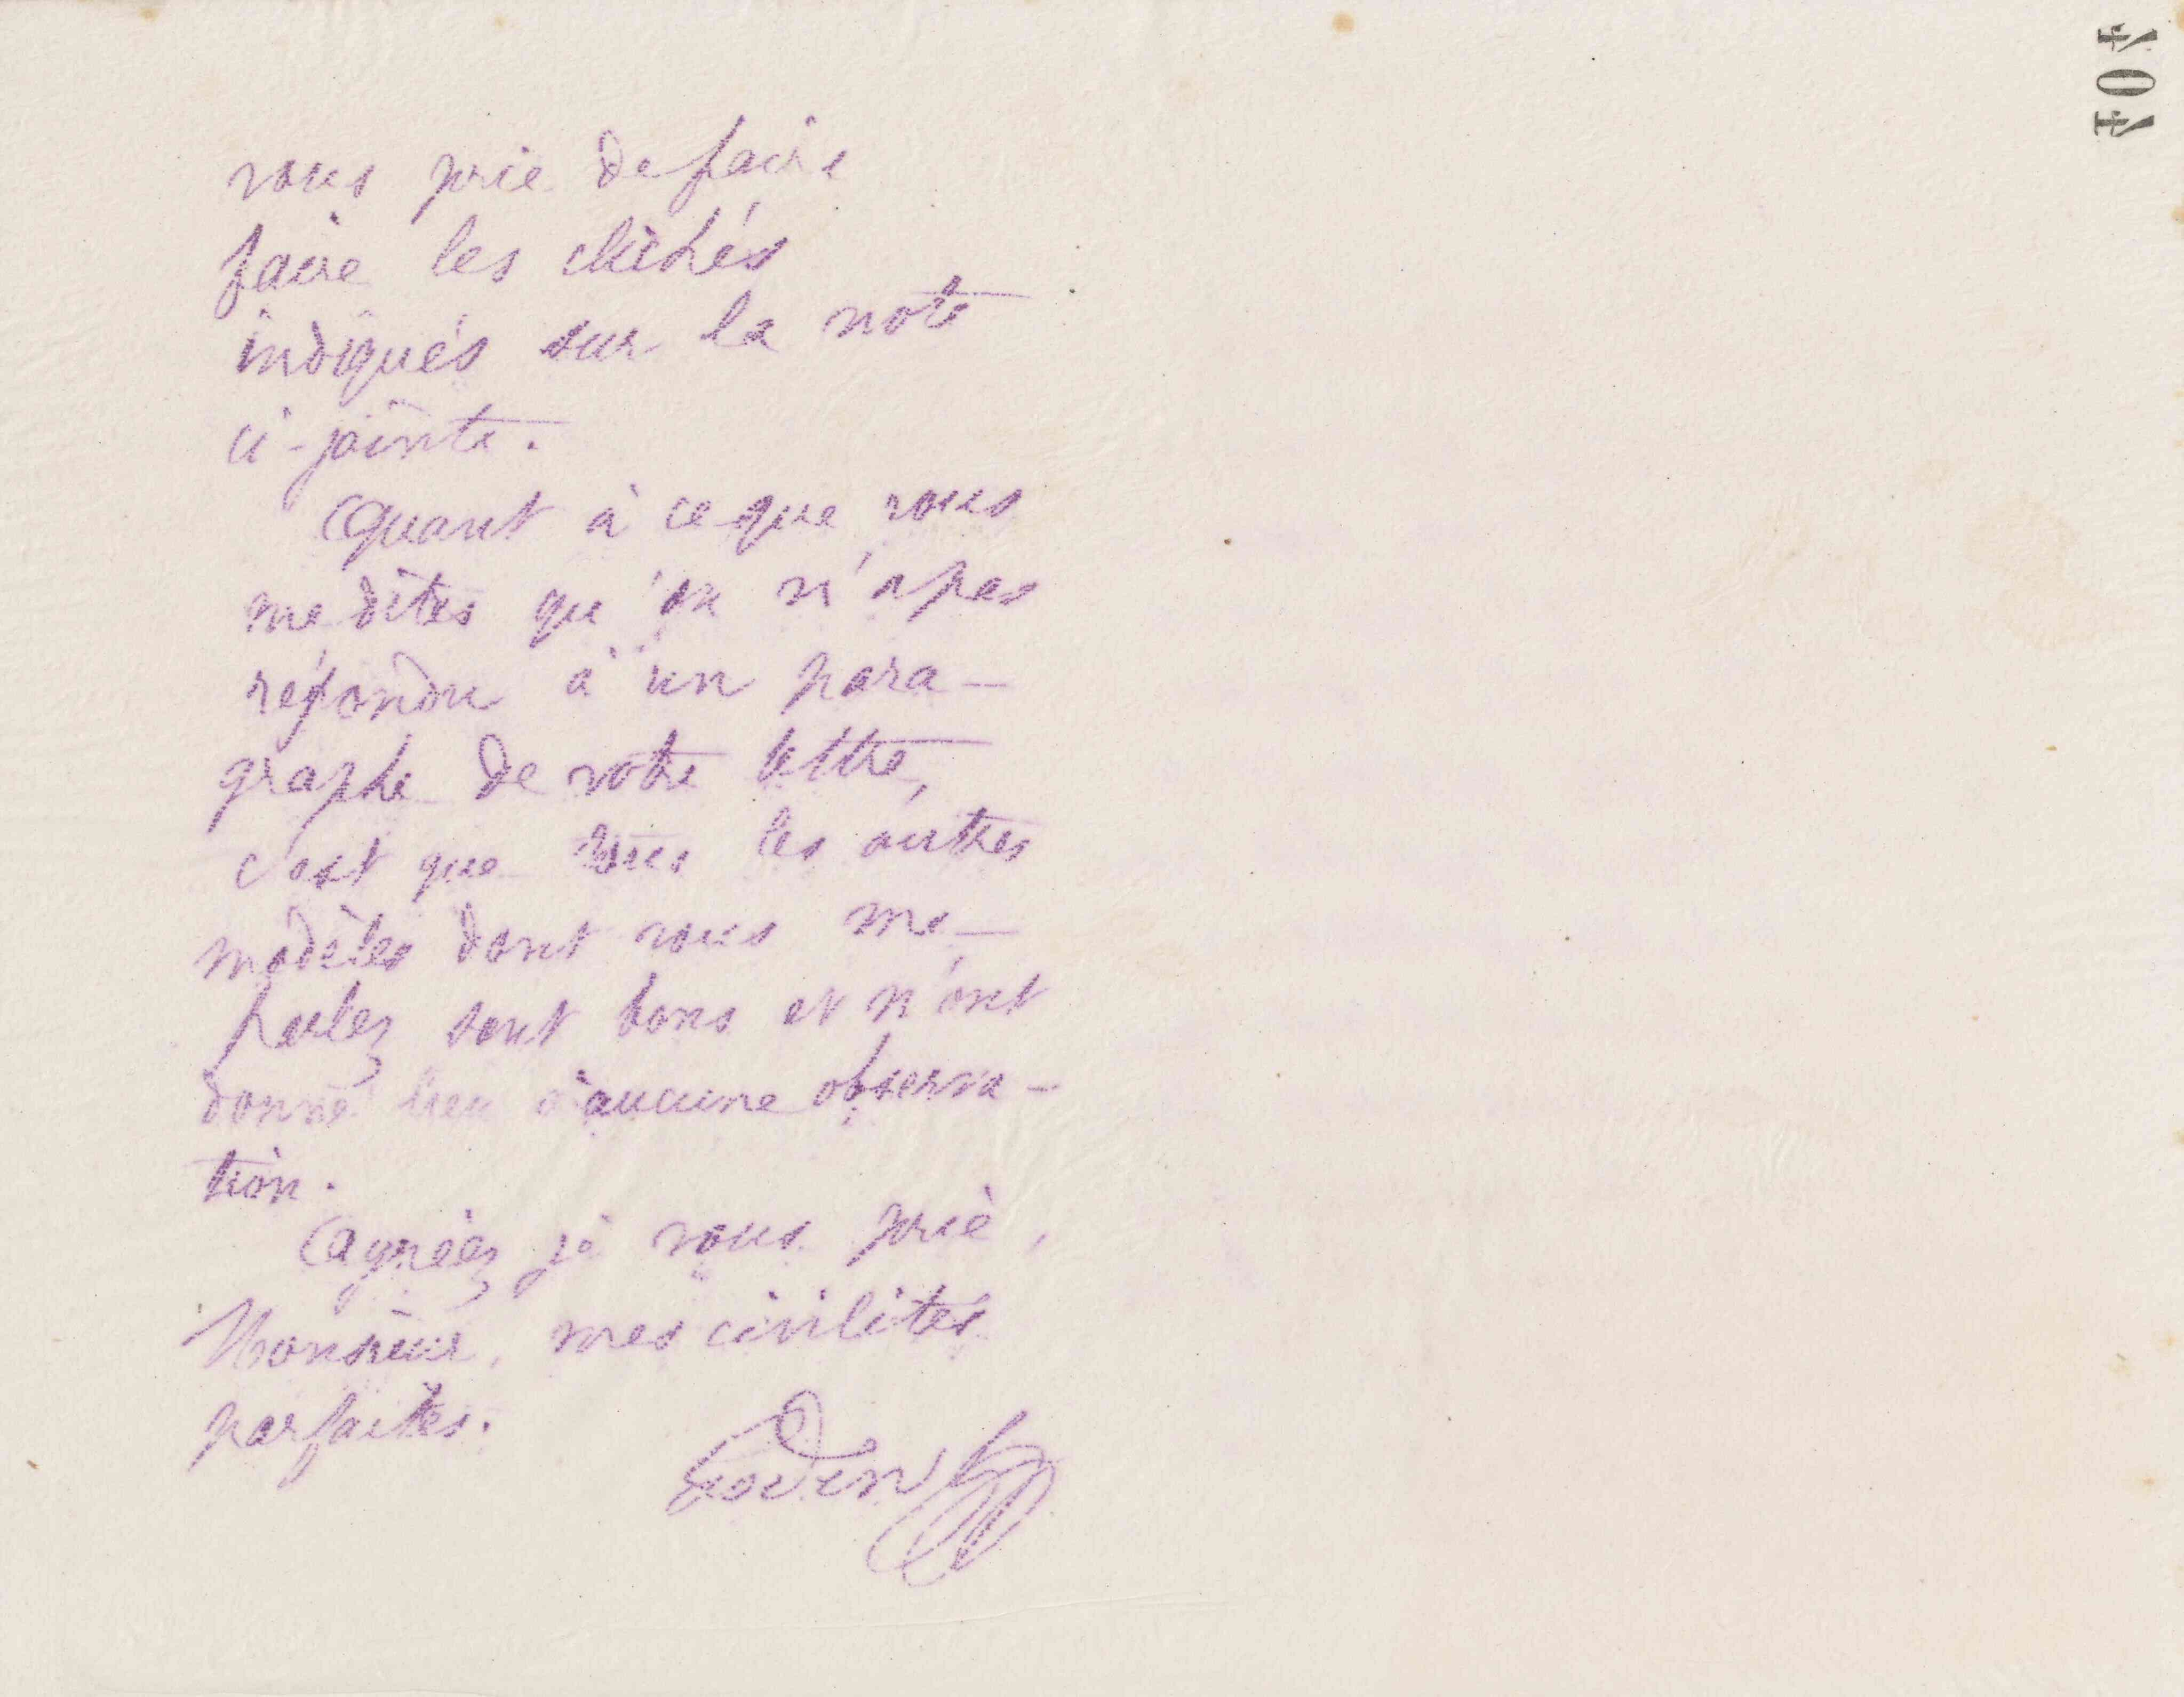 404
vous prie de faire
faire les clichés
indiqués sur la note
ci-jointe.
Quant à ce que vous
me dites qu'on n'a pas
répondu à un para-
graphe de votre lettre,
c'est que tous les autres
modèles dont vous me
parlez sont bons et n'ont
donné lieu à aucune observa-
tion.
Agréez, je vous prie,
Monsieur, mes civilités
parfaites.
Godin